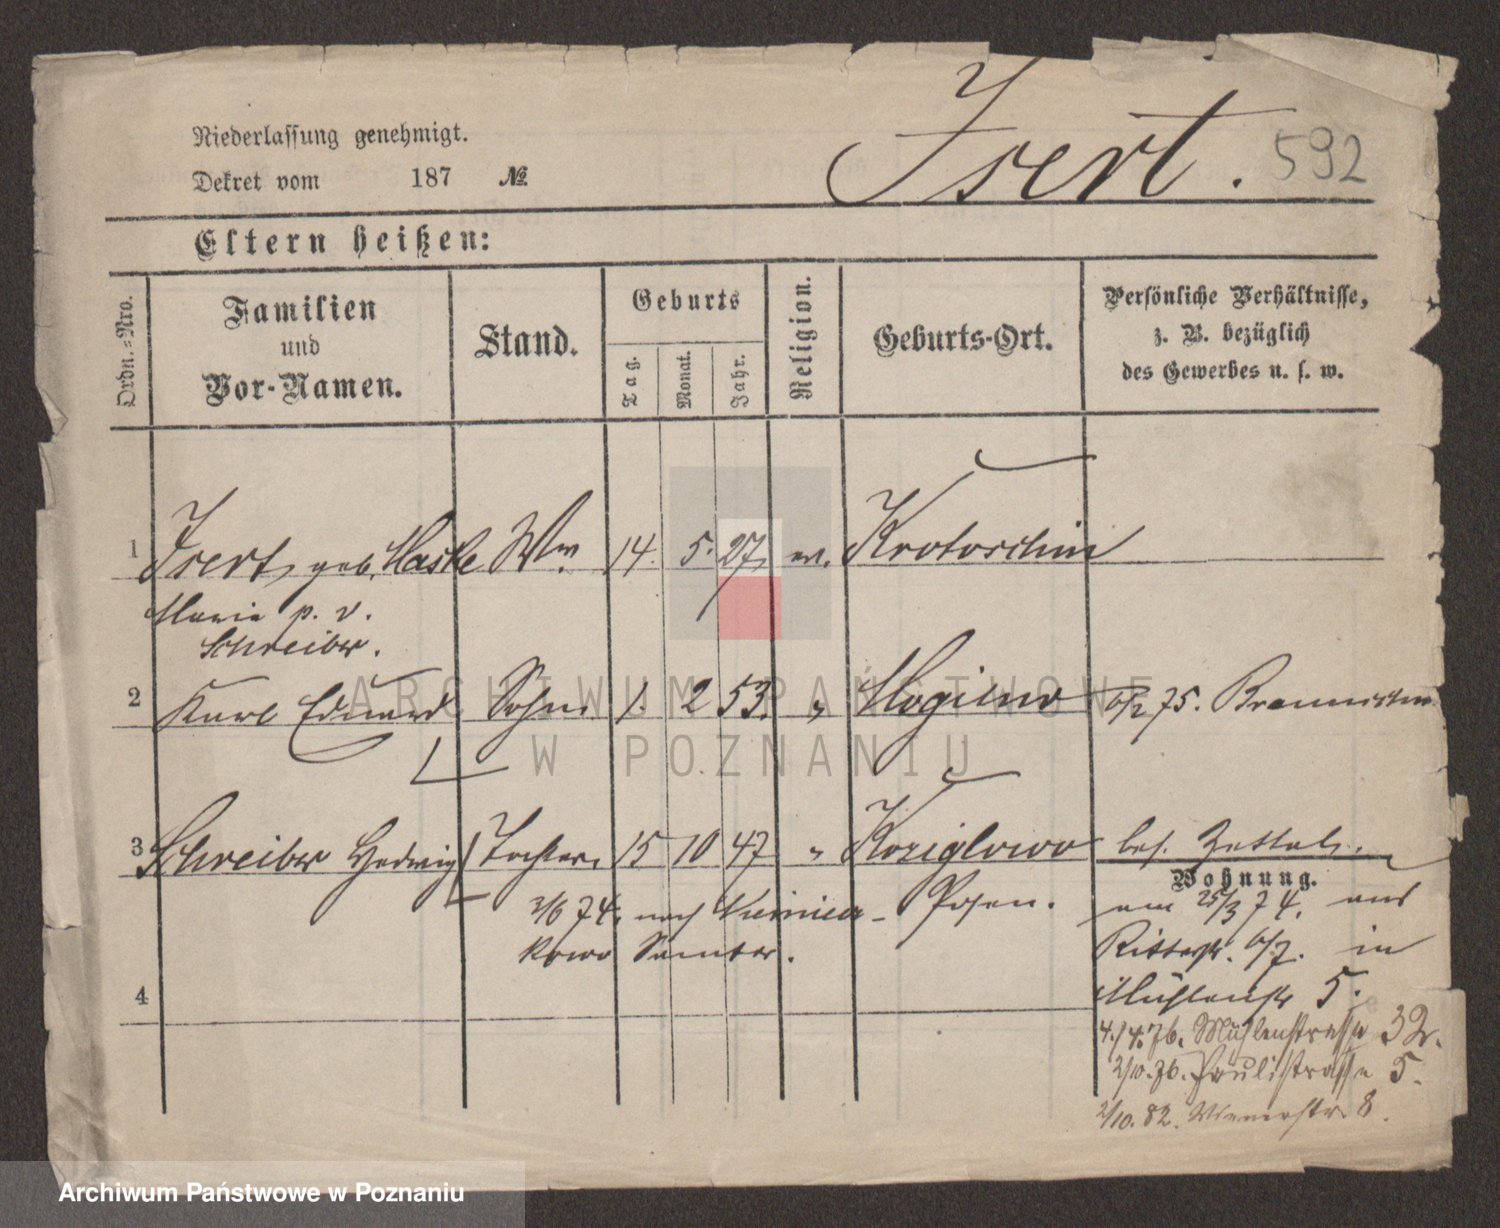 Niederlassung genehmigt.
Dekret vom 187 №
Isert. 592
Eltern heißen:
Ordn.=Nro.
Familien
und
Vor-Namen.
Stand.
Geburts
Tag.
Monat.
Jahr.
Religion.
Geburts-Ort.
Persönliche Verhältnisse,
z. B. bezüglich
des Gewerbes u. s. w.
1 Isert, geb. Haske Ww 14. 5. 27, ev. Krotoschin
Marie p. v.
Schreiber.
2 Karl Eduard Sohn 1. 2 53. " Mogilno 6/2 75. Braunschw
ARCHIWUM PAŃSTWOWE
W POZNANIU
3 Schreiber Hedwig Tochter 15 10 47 " Koziglowo bes. Zettel.
Wohnung.
2/6 74. nach - Posen. am 25/3 74. aus
Samter. Ritterstr. 6/7. in
4 Mühlenstr 5.
4./4.76. Mühlenstrasse 32.
2/10.76. Paulistrasse 5.
2/10.82. Wienerstr 8.
Archiwum Państwowe w Poznaniu